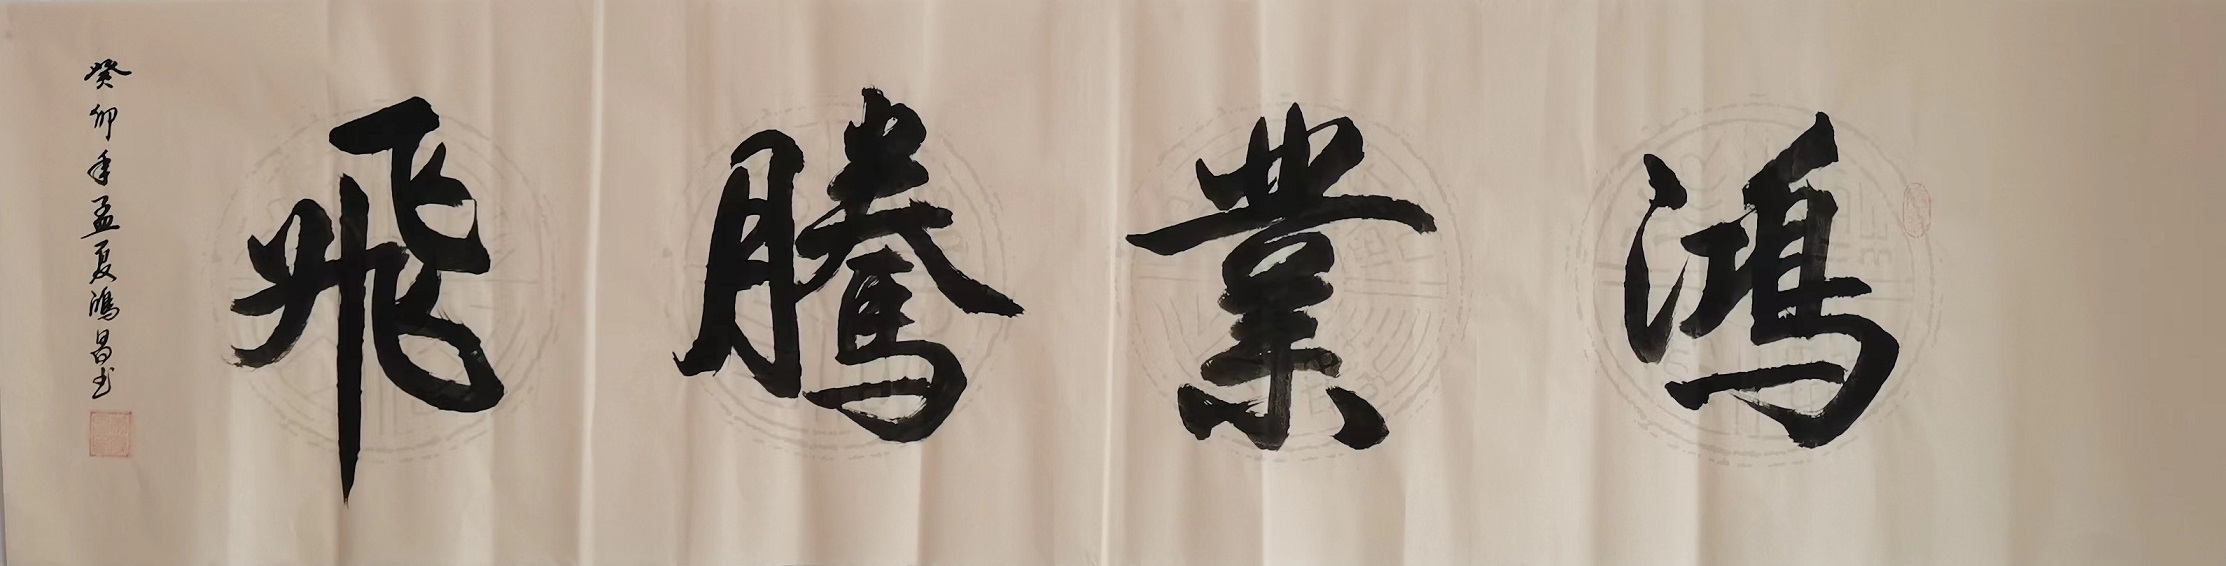 鴻業騰飛
癸卯年孟夏鴻昌书